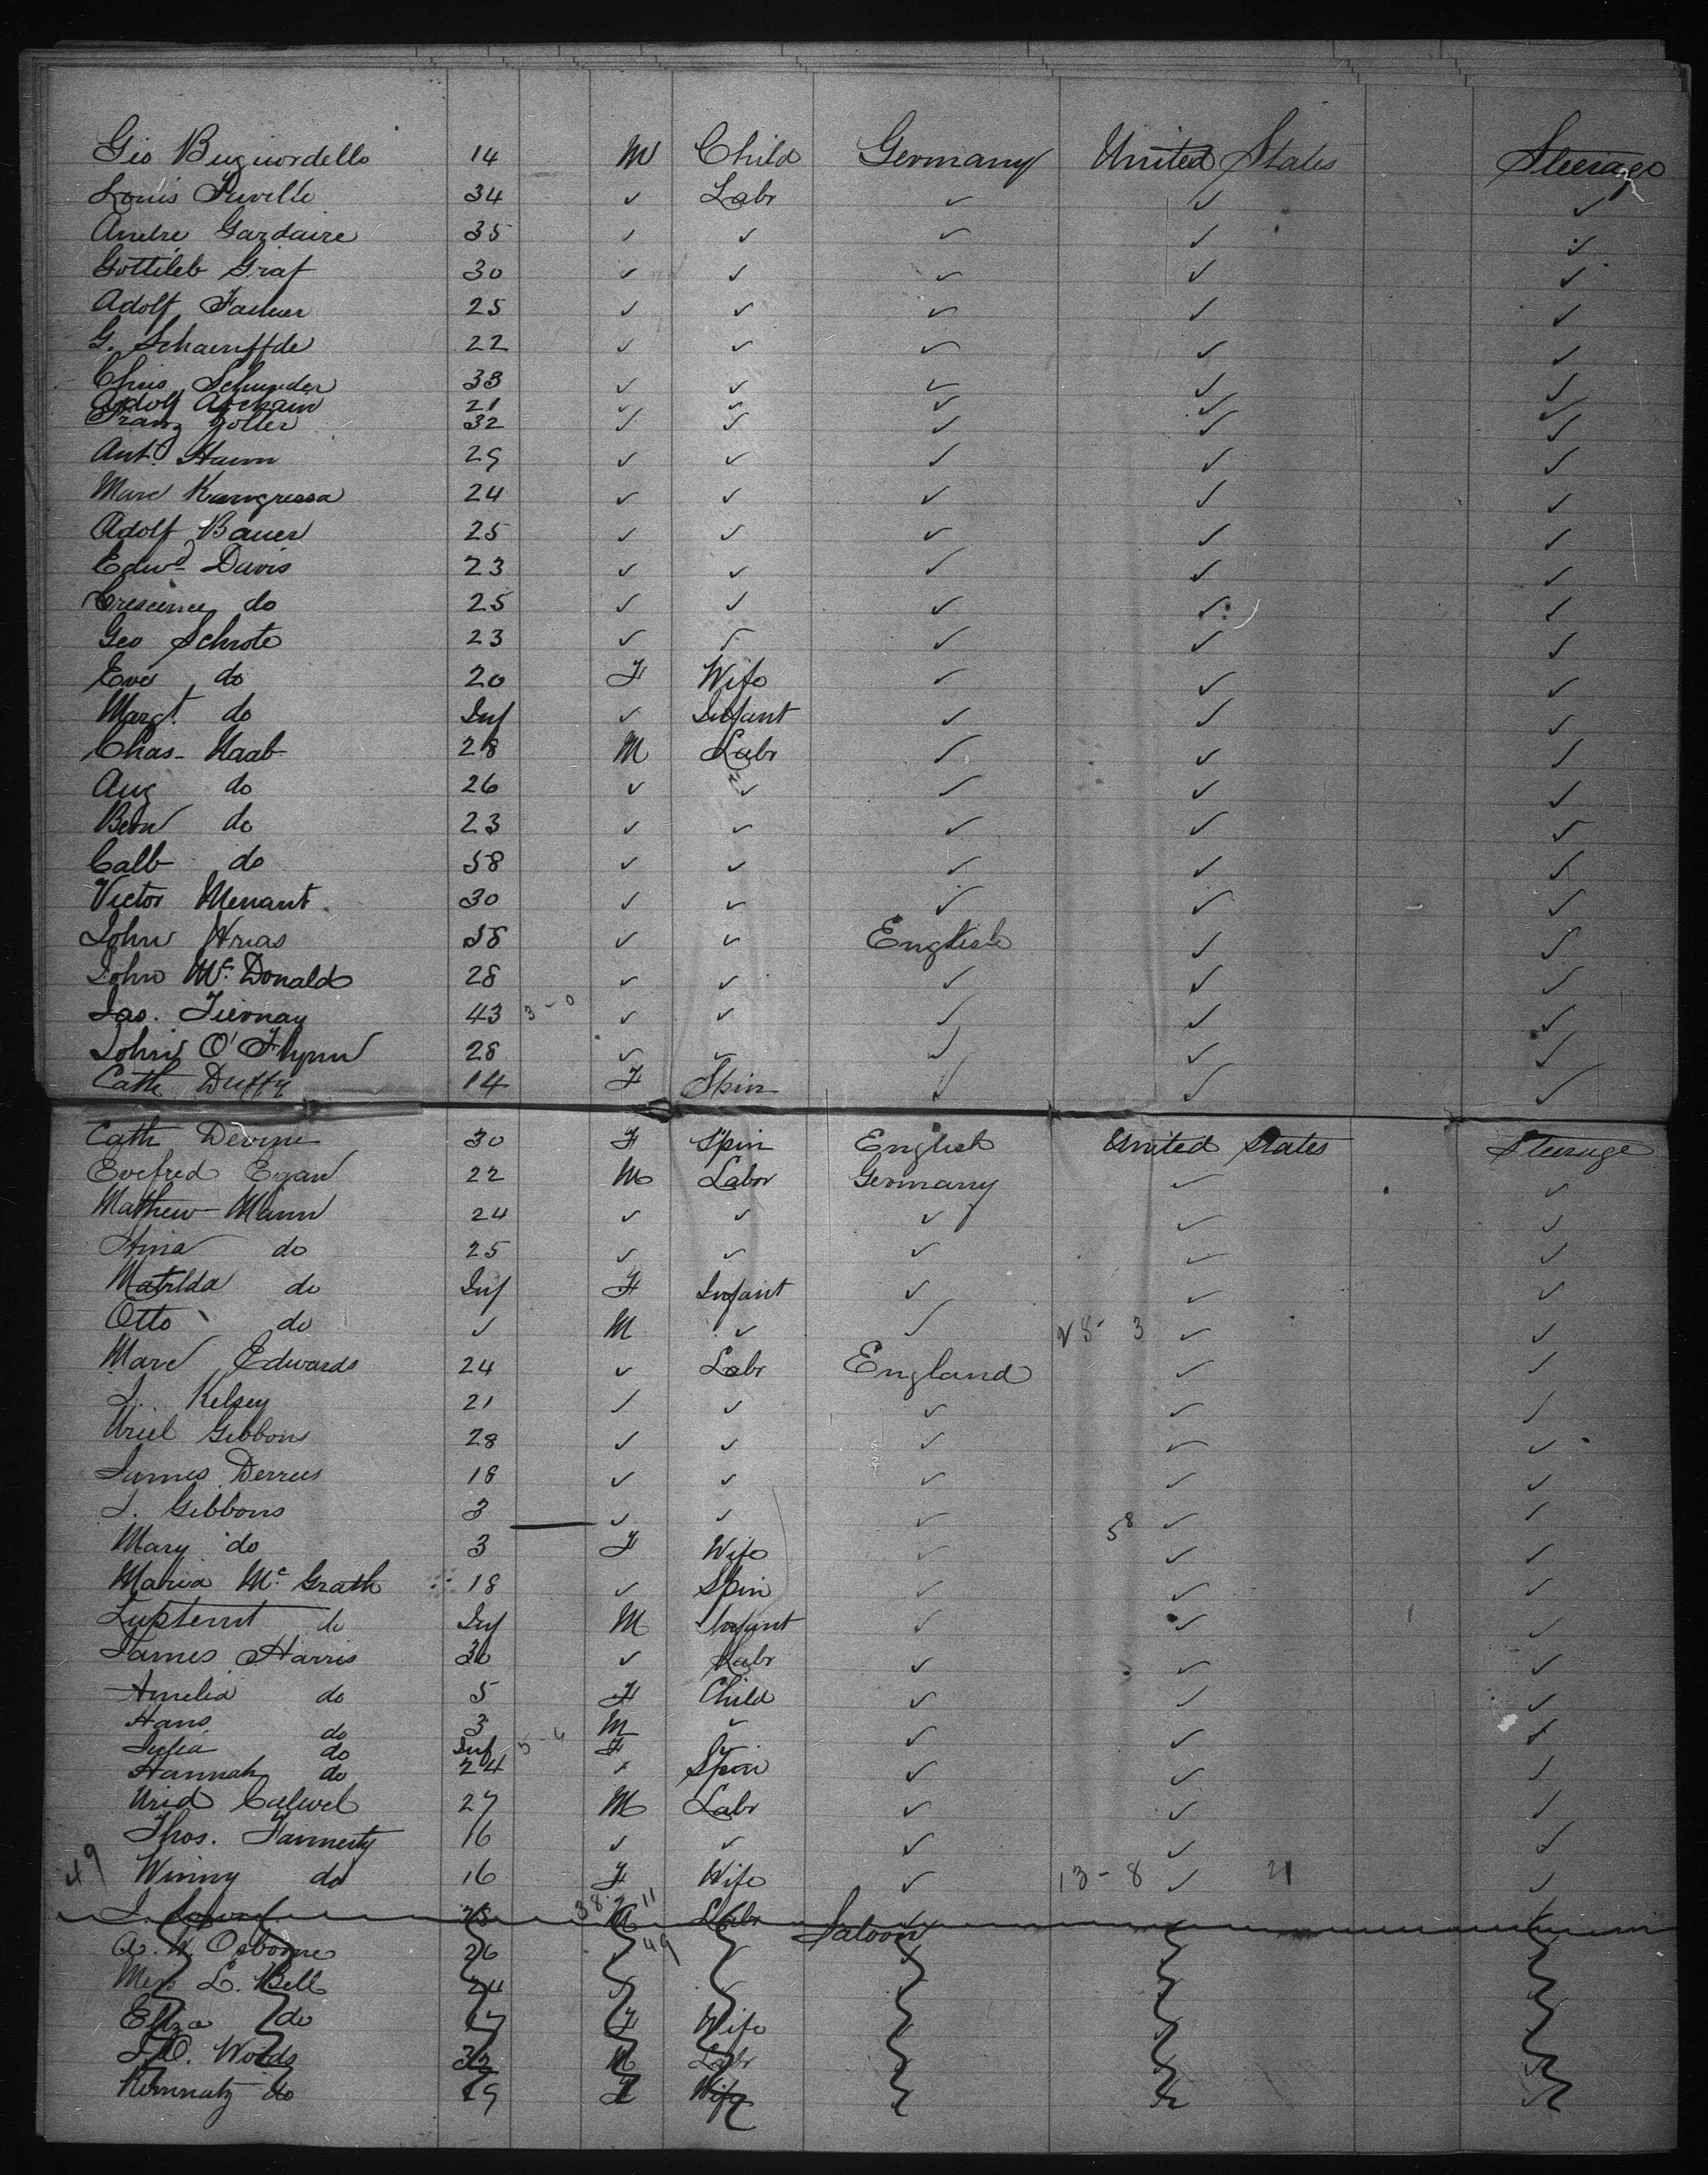 Gio Bugnordello 14 M Child Germany United States Steerage
Louis 34 ✓ Labr ✓ ✓ ✓
Andre Gardaire 35 ✓ ✓ ✓ ✓ ✓
Gottileb Graf 30 ✓ ✓ ✓ ✓ ✓
Adolf 25 ✓ ✓ ✓ ✓ ✓
G. 22 ✓ ✓ ✓ ✓ ✓
Chris 33 ✓ ✓ ✓ ✓ ✓
Adolf 21 ✓ ✓ ✓ ✓ ✓
Franz Zoller 32 ✓ ✓ ✓ ✓ ✓
Ant. Hamm 29 ✓ ✓ ✓ ✓ ✓
Marc 24 ✓ ✓ ✓ ✓ ✓
Adolf Bauer 25 ✓ ✓ ✓ ✓ ✓
Edwd Davis 23 ✓ ✓ ✓ ✓ ✓
Crescence do 25 ✓ ✓ ✓ ✓ ✓
Geo Schrote 23 ✓ ✓ ✓ ✓ ✓
Eve do 20 F Wife ✓ ✓ ✓
Margt. do Inf ✓ Infant ✓ ✓ ✓
Chas- 28 M Labr ✓ ✓ ✓
Aug do 26 ✓ ✓ ✓ ✓ ✓
do 23 ✓ ✓ ✓ ✓ ✓
Calb do 58 ✓ ✓ ✓ ✓ ✓
Victor Menant 30 ✓ ✓ ✓ ✓ ✓
John ✓ ✓ English ✓ ✓
John Mc. Donald 28 ✓ ✓ ✓ ✓ ✓
Jas. Tiernay 43 3-0 ✓ ✓ ✓ ✓ ✓
John O'Flynn 28 ✓ ✓ ✓ ✓ ✓
Cath Duffy 14 F Spin ✓ ✓ ✓
Cath Devine 30 F Spin English United States Steerage
Evefred Egan 22 M Labor Germany ✓ ✓
Mathew Mann 24 ✓ ✓ ✓ ✓ ✓
do 25 ✓ ✓ ✓ ✓ ✓
Matilda do Inf F Infant ✓ ✓ ✓
Otto do ✓ M ✓ ✓ ✓ ✓
Marc Edwards 24 ✓ Labr England ✓ ✓
J. Kelsey 21 ✓ ✓ ✓ ✓ ✓
Uriel Gibbons 28 ✓ ✓ ✓ ✓ ✓
James 18 ✓ ✓ ✓ ✓ ✓
J. Gibbons 3 ✓ ✓ ✓ 58 ✓ ✓
Mary do 3 F Wife ✓ ✓ ✓
Maria Mc Grath 18 ✓ Spin ✓ ✓ ✓
do Inf M Infant ✓ ✓ ✓
James Harris 30 ✓ Labr ✓ ✓ ✓
Amelia do 5 F Child ✓ ✓ ✓
Hans do 3 M ✓ ✓ ✓ ✓
Julia do Inf F ✓
Hannah do 24 ✓ Spin ✓ ✓ ✓
Calwel 27 M Labr ✓ ✓ ✓
Thos. 16 ✓ ✓ ✓ ✓ ✓
49 Winny do 16 F Wife ✓ 13-8 ✓ 21 ✓
J. 28 38 M 11 Labr
A. W. Osborne 26 49 Saloon
L. Bell 24
Eliza do F Wife
Woods 32 M Labr
do F Wife